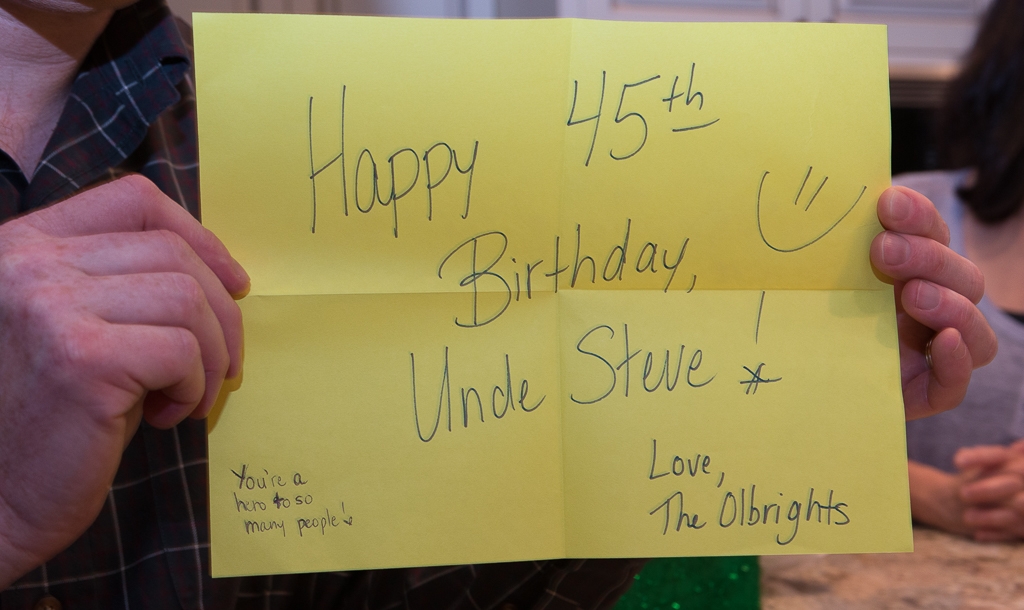 Happy 45th
Birthday,
Uncle Steve!
Love,
The Olbrights
You're a
hero to so
many people!